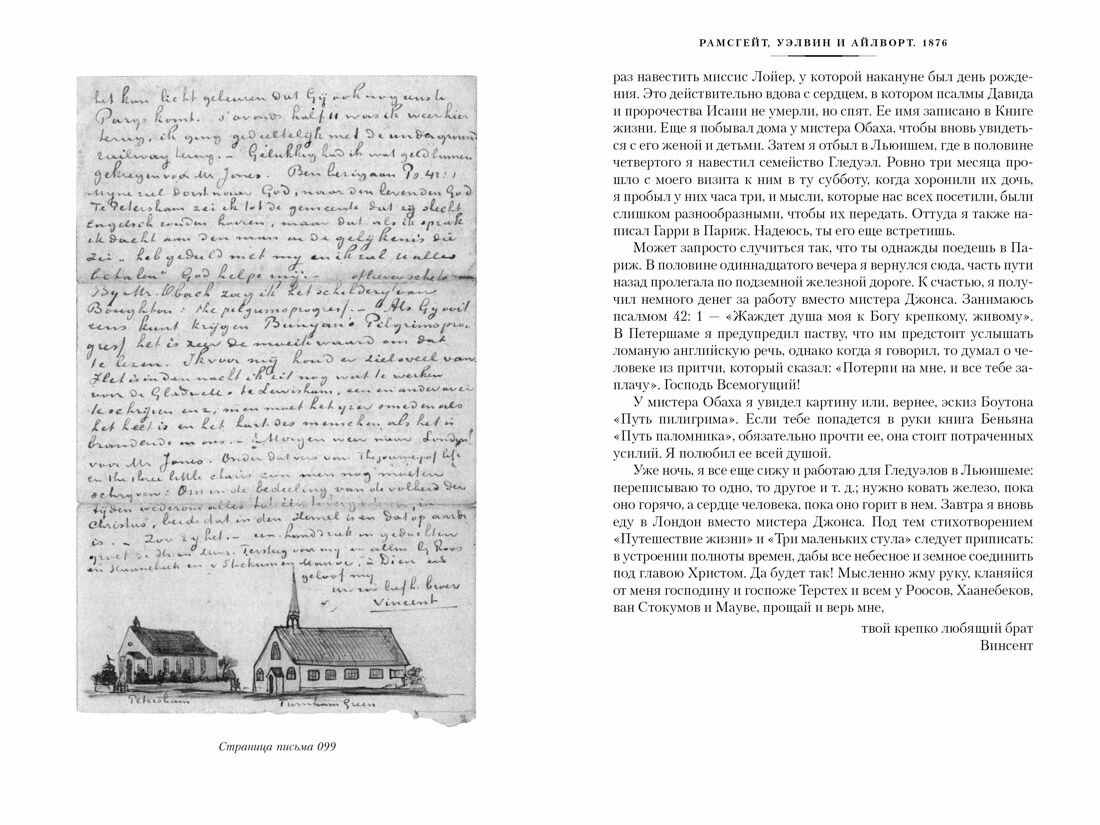 het kan licht gebeuren dat Gij ook nog eens te
Parys komt. s'avonds half 11 was ik weer hier
terug, ik ging gedeeltelijk met de underground
railway terug. – Gelukkig had ik wat geld binnen
gekregen voor Mr Jones. Ben bezig aan Ps. 42:1
Myne ziel dorst naar God, naar den levenden God
Te Petersham zei ik tot de gemeente dat zy slecht
Engelsch zouden hooren, maar dat als ik sprak
ik dacht aan den man in de gelykenis die
zei „heb geduld met my en ik zal U alles
betalen" God helpe mij. –
By Mr. Obach zag ik het schildery van
Boughton: the pilgrimsprogress. – Als Gij ooit
eens kunt krijgen Bunyan's Pilgrimspro-
gress het is zeer de moeite waard om dat
te lezen. Ik voor mij houd er zielsveel van
Het is in den nacht ik zit nog wat te werken
voor de Gladwells te Lewisham, een en ander over
te schrijven enz, men moet het yzer smeden als
het heet is en het hart des menschen als het is
brandende in ons. – Morgen weer naar London
voor Mr Jones. Onder dat vers van The journey of life
en the three little chairs zou men nog moeten
schrijven: Om in de bedeeling van de volheid der
tijden wederom alles tot één te vergaderen in
Christus, beide dat in den Hemel is en dat op aarde
is. – Zoo zy het. – een handdruk in gedachten
groet de Heer & Mevr. Tersteeg voor my en allen bij Roos
en Haanebeek en v Stockum en Mauve, à Dieu en
geloof my
uw zoo liefh. broer
Vincent
Petersham
Turnham Green
Страница письма 099
РАМСГЕЙТ, УЭЛВИН И АЙЛВОРТ. 1876
раз навестить миссис Лойер, у которой накануне был день рожде-
ния. Это действительно вдова с сердцем, в котором псалмы Давида
и пророчества Исаии не умерли, но спят. Ее имя записано в Книге
жизни. Еще я побывал дома у мистера Обаха, чтобы вновь увидеть-
ся с его женой и детьми. Затем я отбыл в Льюишем, где в половине
четвертого я навестил семейство Гледуэл. Ровно три месяца про-
шло с моего визита к ним в ту субботу, когда хоронили их дочь,
я пробыл у них часа три, и мысли, которые нас всех посетили, были
слишком разнообразными, чтобы их передать. Оттуда я также на-
писал Гарри в Париж. Надеюсь, ты его еще встретишь.
Может запросто случиться так, что ты однажды поедешь в Па-
риж. В половине одиннадцатого вечера я вернулся сюда, часть пути
назад пролегала по подземной железной дороге. К счастью, я полу-
чил немного денег за работу вместо мистера Джонса. Занимаюсь
псалмом 42: 1 — «Жаждет душа моя к Богу крепкому, живому».
В Петершаме я предупредил паству, что им предстоит услышать
ломаную английскую речь, однако когда я говорил, то думал о че-
ловеке из притчи, который сказал: «Потерпи на мне, и все тебе за-
плачу». Господь Всемогущий!
У мистера Обаха я увидел картину или, вернее, эскиз Боутона
«Путь пилигрима». Если тебе попадется в руки книга Беньяна
«Путь паломника», обязательно прочти ее, она стоит потраченных
усилий. Я полюбил ее всей душой.
Уже ночь, я все еще сижу и работаю для Гледуэлов в Льюишеме:
переписываю то одно, то другое и т. д.; нужно ковать железо, пока
оно горячо, а сердце человека, пока оно горит в нем. Завтра я вновь
еду в Лондон вместо мистера Джонса. Под тем стихотворением
«Путешествие жизни» и «Три маленьких стула» следует приписать:
в устроении полноты времен, дабы все небесное и земное соединить
под главою Христом. Да будет так! Мысленно жму руку, кланяйся
от меня господину и госпоже Терстех и всем у Роосов, Хаанебеков,
ван Стокумов и Мауве, прощай и верь мне,
твой крепко любящий брат
Винсент